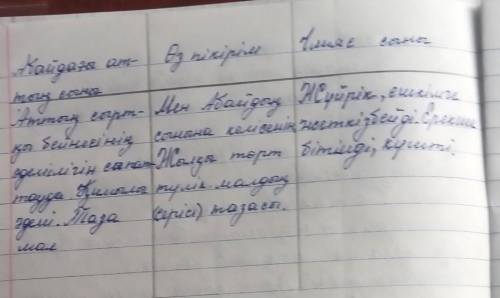 Абайдағы ат-
тың сыны
Өз пікірім
Ілияс сыны
Аттың сырт-
қы бейнесінің
әдемілігін сипат-
тауда. Қимылы
әдемі. Таза
мал
Мен Абайдың
сынына келісемін
Жылқы төрт
түлік малдың
(ірісі) тазасы.
Жүйрік, ешкімге
жеткізбейді. Ерекше
бітімді, күшті.